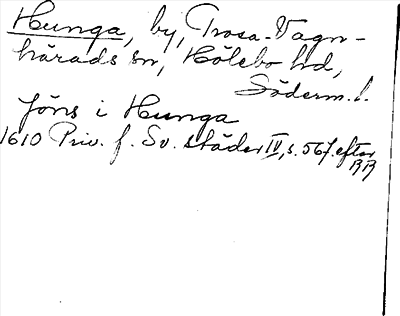 Hunga, by, Trosa-Vagn-
härads sn, Hölebo hd,
Söderm. l.
Jöns i Hunga
1610 Priv. f. Sv. städer IV, s. 567. efter
RR